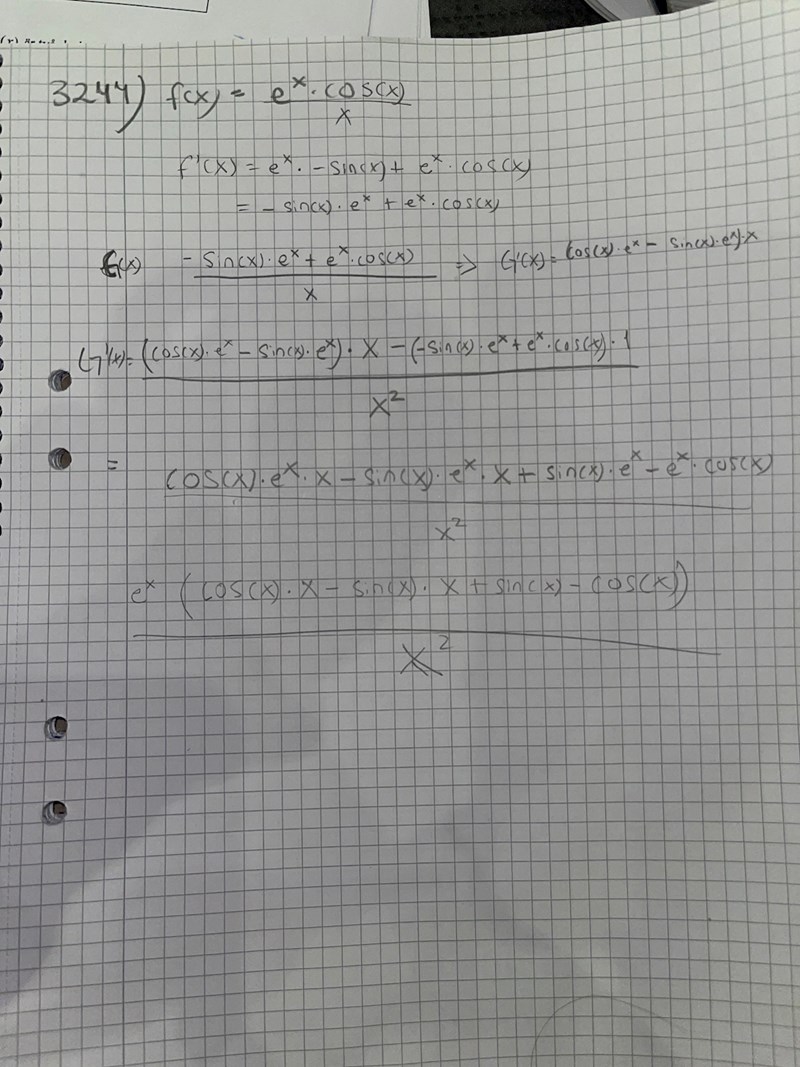 3244) f(x) = e^x · cos(x) / x
f'(x) = e^x · - sin(x) + e^x · cos(x)
= - sin(x) · e^x + e^x · cos(x)
G(x) - sin(x) · e^x + e^x · cos(x) / x => G'(x) = cos(x) · e^x - sin(x) · e^x) · x
G'(x) = (cos(x) · e^x - sin(x) · e^x) · x - (-sin(x) · e^x + e^x · cos(x) · 1 / x^2
= cos(x) · e^x · x - sin(x) · e^x · x + sin(x) · e^x - e^x · cos(x) / x^2
e^x (cos(x) · x - sin(x) · x + sin(x) - cos(x)) / x^2